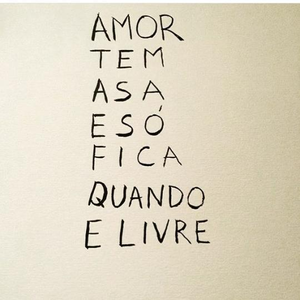 AMOR
TEM
ASA
ESÓ
FICA
QUANDO
E LIVRE